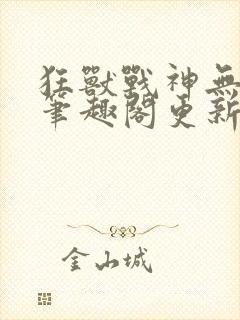 狂獸戰神無
筆趣閣更新
金山城